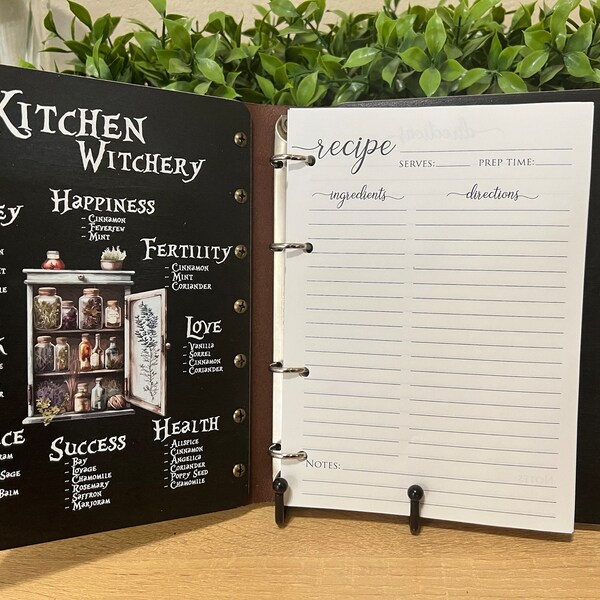 Kitchen
Witchery
Happiness
- Cinnamon
- Feverfew
- Mint
Fertility
- Cinnamon
- Mint
- Coriander
Love
- Vanilla
- Sorrel
- Cinnamon
- Coriander
Health
- Allspice
- Cinnamon
- Angelica
- Coriander
- Poppy Seed
- Chamomile
Success
- Bay
- Lovage
- Chamomile
- Rosemary
- Saffron
- Marjoram
Sage
Balm
recipe
SERVES: PREP TIME:
ingredients
directions
NOTES: